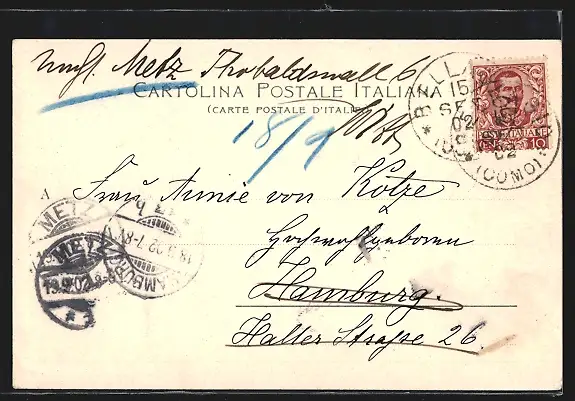 Metz Theobaldswall 6
CARTOLINA POSTALE ITALIANA
(CARTE POSTALE D'ITALIE)
BELLA
15
SET
02
(COMO)
POSTE ITALIANE
CEN. 10
18/9
Metz
Frau Annie von Kotze
Hochwohlgeboren
Hamburg.
Haller Straße 26.
METZ
METZ
19.9.02
HAMBURG
18.9.02.7-8V